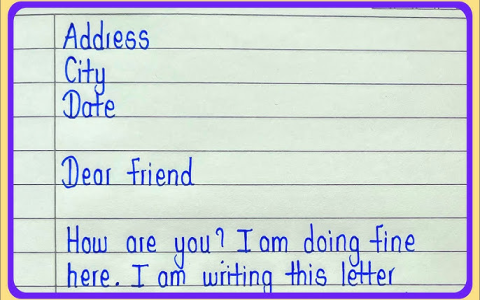 Address
City
Date
Dear friend
How are you? I am doing fine
here. I am writing this letter